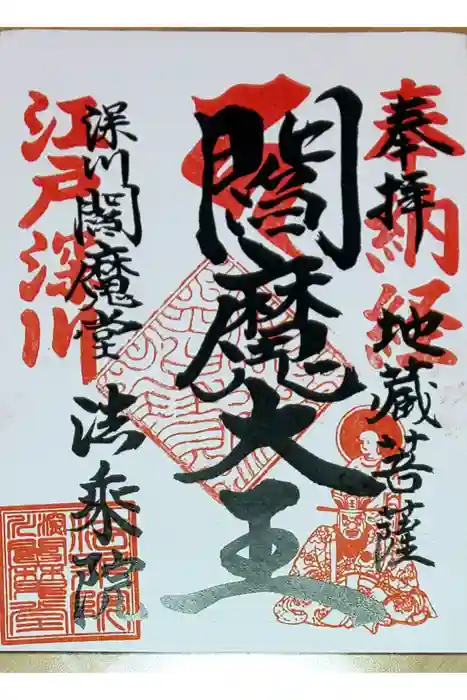 奉拝
地蔵菩薩
奉納経
閻魔大王
深川閻魔堂
法乗院
江戸深川